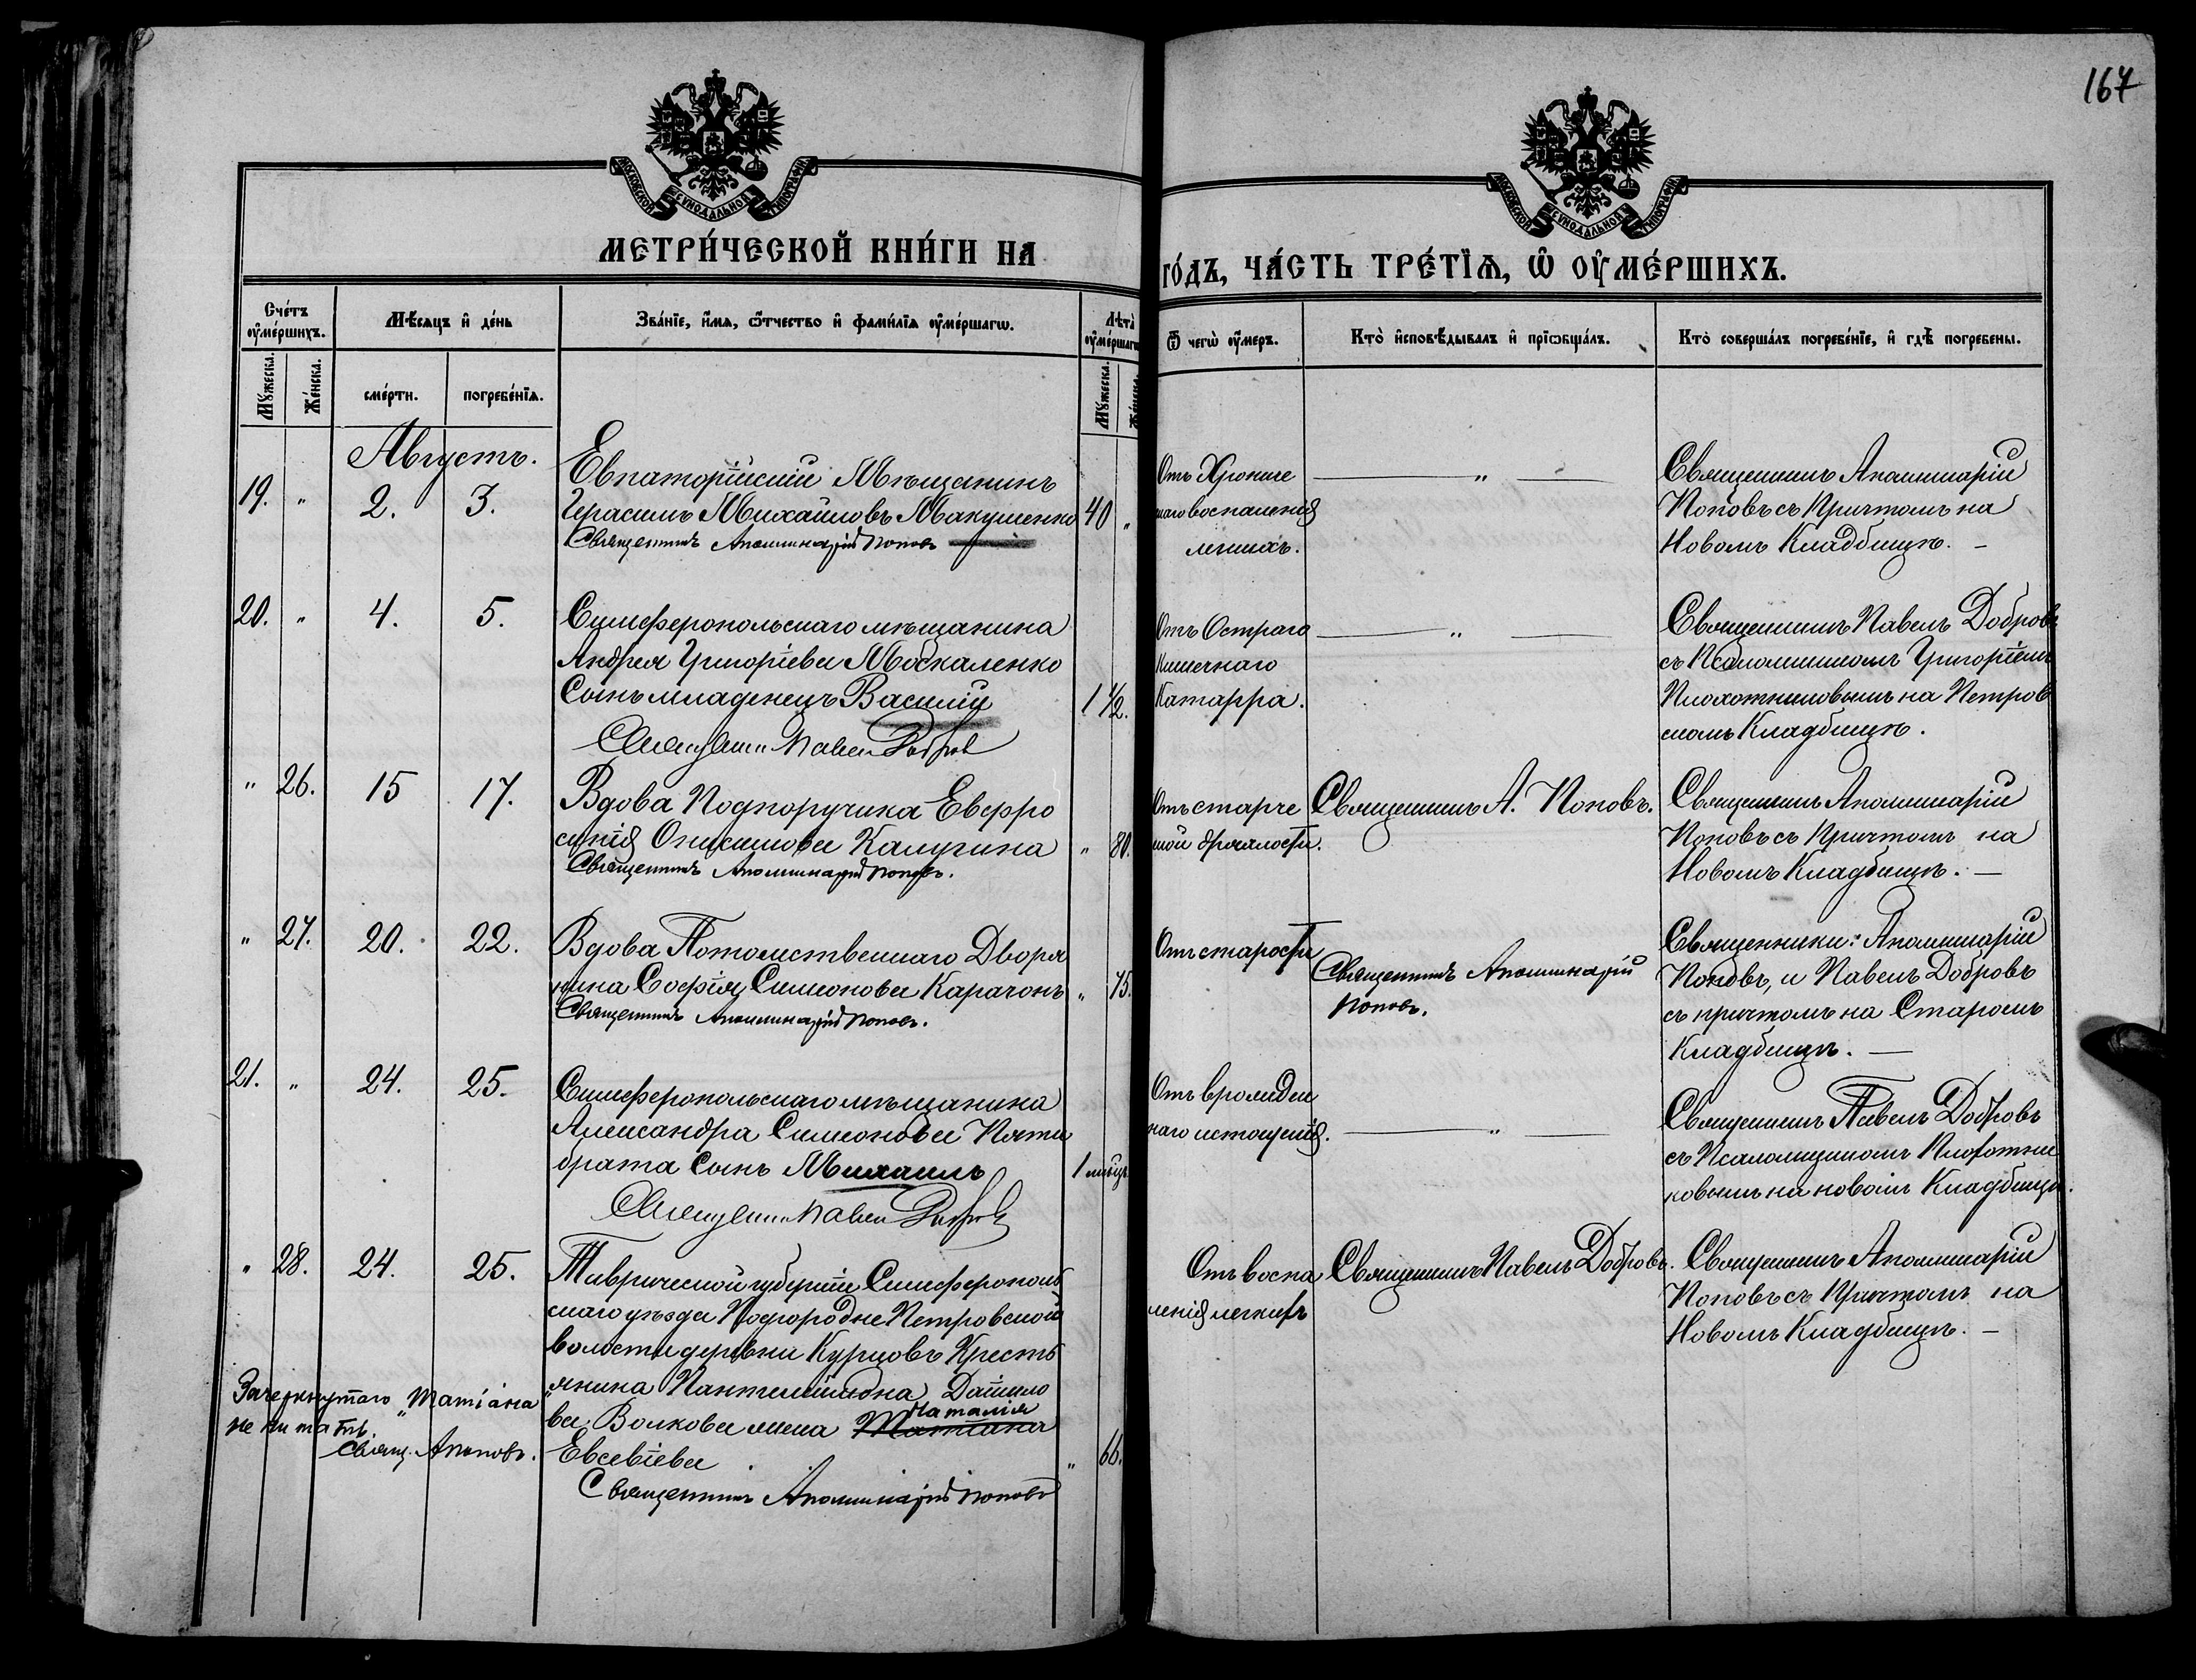 167
МОСКОВСКОЙ СѴНОДАЛЬНОЙ ТИПОГРАФІИ
МОСКОВСКОЙ СѴНОДАЛЬНОЙ ТИПОГРАФІИ
МЕТРИ́ЧЕСКОЙ КНИ́ГИ НА
ГО́ДЪ, ЧА́СТЬ ТРЕ́ТІѦ, Ѡ ОУ҆МЕ́РШИХЪ.
Сче́тъ оу҆ме́ршихъ.
Мѣ́сяцъ и҆ де́нь
Зва́нїе, и҆́мѧ, ѻ҆́тчество и҆ фамі́лїѧ оу҆ме́ршагѡ.
Лѣта̀ оу҆ме́ршагѡ
Ѿ чегѡ̀ оу҆́меръ.
Кто̀ и҆сповѣ́дывалъ и҆ прїѡбща́лъ.
Кто̀ соверша́лъ погребе́нїе, и҆ гдѣ̀ погребены.
Мꙋ́жеска.
Же́нска.
сме́рти.
погребе́нїѧ.
Мꙋ́жеска.
Же́нска.
Августъ.
19. " 2. 3.
Евпаторійскій Мѣщанинъ
Герасимъ Михайловъ Макушенко
Священникъ Аполлинарій Поповъ
40 "
Отъ Хрониче
скаго воспаленія
легкихъ.
"
Священникъ Аполлинарій
Поповъ съ Причтомъ на
Новомъ Кладбищѣ. –
20. " 4. 5.
Симферопольскаго мѣщанина
Андрея Григоріева Москаленко
Сынъ младенецъ Василій
Священникъ Павелъ Добровъ
1 1/2.
Отъ Остраго
Кишечнаго
Катарра.
"
Священникъ Павелъ Добровъ
съ Псаломщикомъ Григоріемъ
Плохотниковымъ на Петров
скомъ Кладбищѣ.
" 26. 15 17.
Вдова Подпоручика Евфро
синія Онисимова Калугина
Священникъ Аполлинарій Поповъ.
" 80.
Отъ старче
ской дряхлости.
Священникъ А. Поповъ.
Священникъ Аполлинарій
Поповъ съ Причтомъ на
Новомъ Кладбищѣ. –
" 27. 20. 22.
Вдова Потомственнаго Дворя
нина Софія Симеонова Карачонъ
Священникъ Аполлинарій Поповъ.
" 75.
Отъ старости
Священникъ Аполлинарій
Поповъ.
Священники: Аполлинарій
Поповъ, и Павелъ Добровъ
съ причтомъ на Старомъ
Кладбищѣ. –
21. " 24. 25.
Симферопольскаго мѣщанина
Александра Симеонова Пяти
брата Сынъ Михаилъ
Священникъ Павелъ Добровъ
1 мѣсц.
Отъ врожден
наго истощенія.
"
Священникъ Павелъ Добровъ
съ Псаломщикомъ Плохотни
ковымъ на новомъ Кладбищѣ.
" 28. 24. 25.
Таврической губерніи Симферополь
скаго уѣзда Подгородне Петровской
волости деревни Курцовъ Кресть
янина Пантелеимона Данило
ва Волкова жена Татіана Наталія
Евсевіева
Священникъ Аполлинарій Поповъ
" 66.
Отъ воспа
ленія легкихъ
Священникъ Павелъ Добровъ.
Священникъ Аполлинарій
Поповъ съ Причтомъ на
Новомъ Кладбищѣ. –
Зачеркнутаго „Татіана"
не читать.
Свящ. А Поповъ.